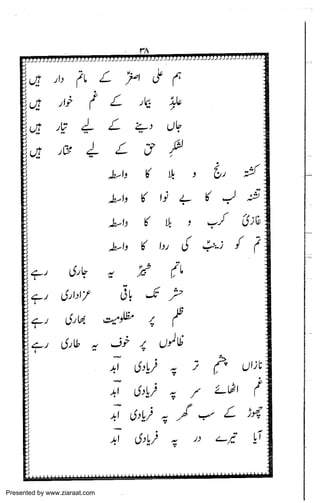 ۳۸
ہم علی اصغرؑ کے ماتم دار ہیں
عابدؑ بیمار کے غم خوار ہیں
جاں دینے کے لیے تیار ہیں
لشکرِ حق کے لیے مختار ہیں
کشتہ رنج و بلا کا واسطہ
تشنہ لب کا بے نوا کا واسطہ
غازئ کرب و بلا کا واسطہ
تم کو زینبؑ کی ردا کا واسطہ
ماتمِ شبیرؑ یہ جاری رہے
حشر تک باقی عزاداری رہے
ظلم پر مظلومیت بھاری رہے
ظالموں پر خوف یہ طاری رہے
نازاں چشمِ تر پہ فریادی آمد
غم اٹھائے سر پہ فریادی آمد
چھوڑ کے سب گھر پہ فریادی آمد
آیا تیرے در پہ فریادی آمد
Presented by www.ziaraat.com